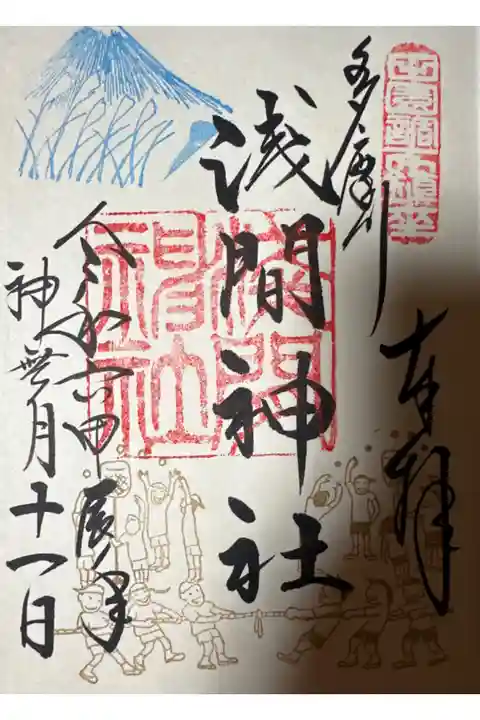 田園調布鎮座
奉拝
多摩川
浅間神社
令和六甲辰年
神無月十一日